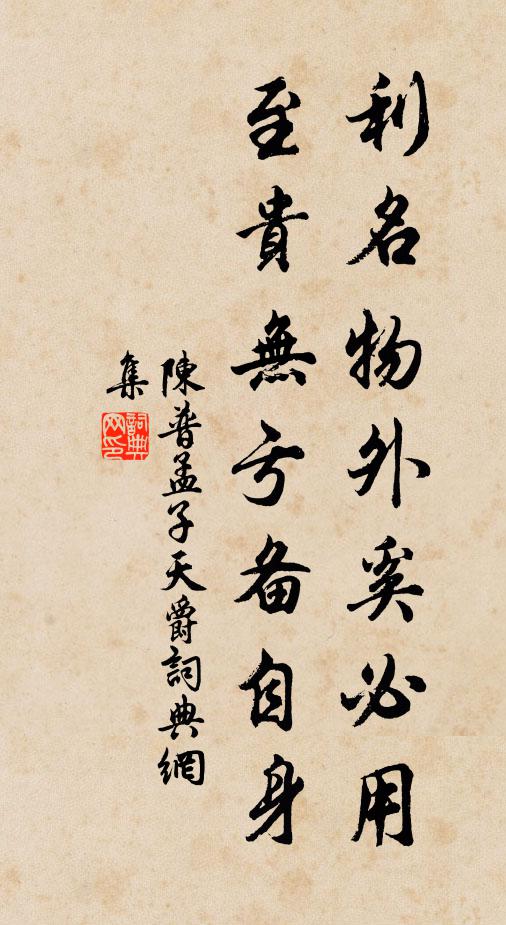 利名物外奚必用
至貴無亏备自身
陳普孟子天爵詞典網
集
詞典
网印